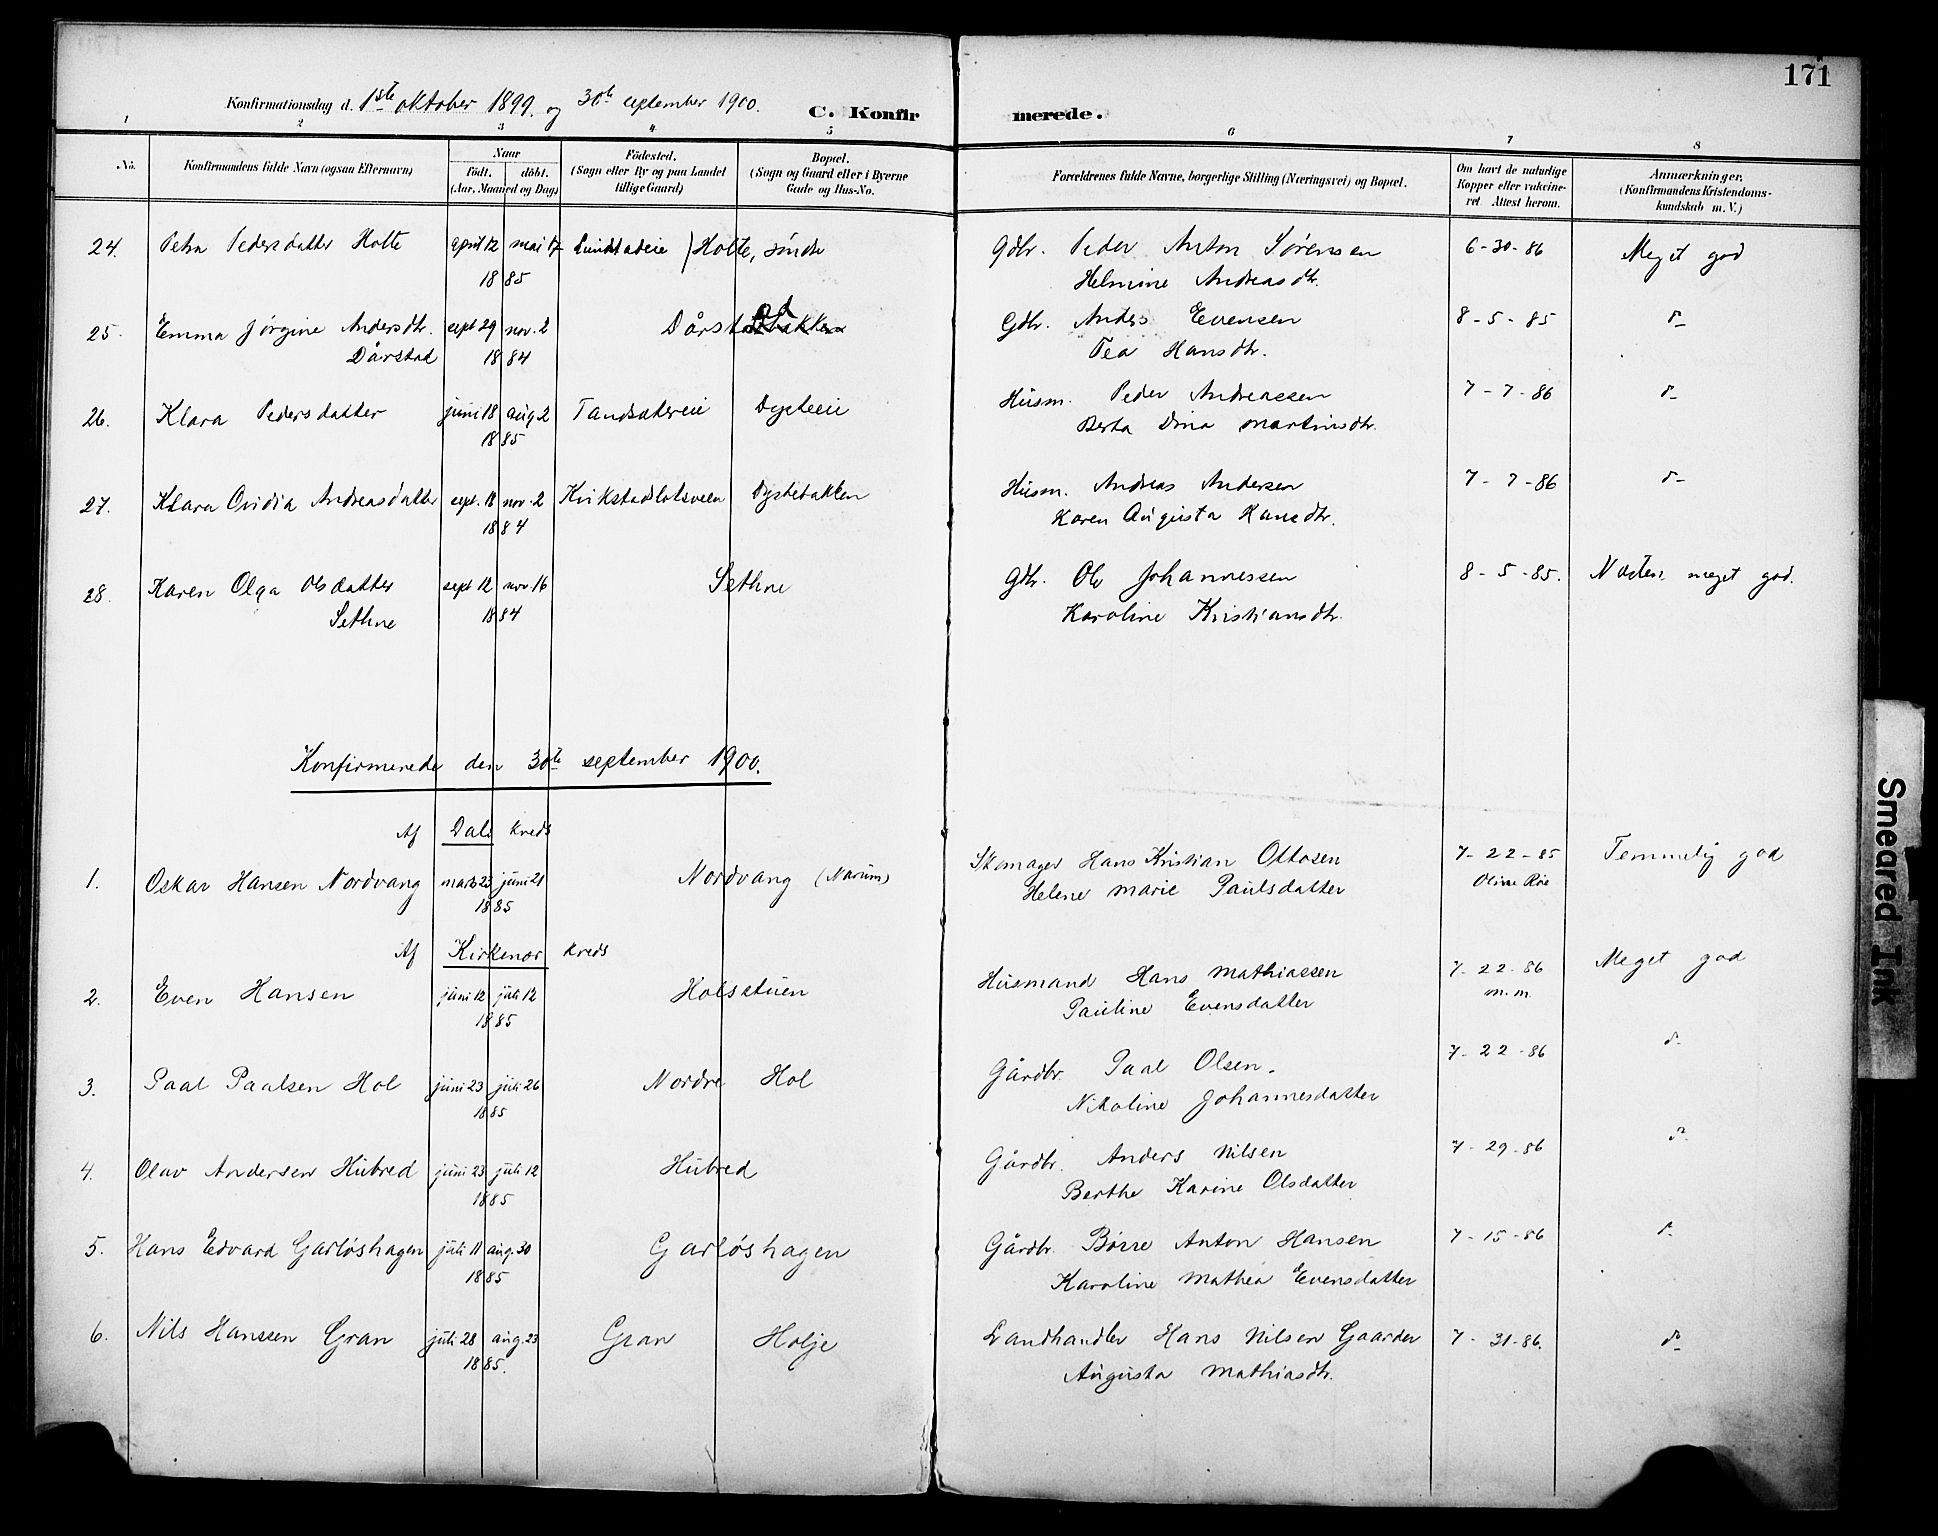 171
Konfirmationsdag d. 1ste oktober 1899. og 30te september 1900. C. Konfirmerede.
1 2 3 4 5 6 7 8
No. Konfirmandens fulde Navn (ogsaa Efternavn) Naar födt. döbt. (Aar, Maaned og Dag) Födested. (Sogn eller By og paa Landet tillige Gaard) Bopæl. (Sogn og Gaard eller i Byerne Gade og Hus-No. Forældrenes fulde Navne, borgerlige Stilling (Næringsvei) og Bopæl. Om havt de naturlige Kopper eller vakcineret. Attest herom. Anmærkninger. (Konfirmandens Kristendomskundskab m. V.)
24. Petra Pedersdatter Holte april 12 mai 17 Holte, söndre Gdbr. Peder Anton Sørensen 6-30-86 Meget god
1885 Helmine Andreasdtr.
25. Emma Jørgine Andersdtr. sept 29 nov. 2 Dårstad Gdbr. Anders Evensen 8-5-85 do
Dårstad 1884 Tea Hansdtr.
26. Klara Pedersdatter juni 18 aug. 2 Tandsætereie Dysteeie Husm. Peder Andreassen 7-7-86 do
1885 Berta Dina Martinsdtr.
27. Klara Ovidia Andreasdatter sept. 18 nov. 2 Dystebakken Husm. Andreas Andersen 7-7-86 do
1884 Karen Augusta Hansdtr.
28. Karen Olga Olsdatter sept 12 nov 16 Sethne Gdbr. Ole Johannessen 8-5-85. Næsten meget god.
Sethne 1884 Karoline Kristiansdtr.
Konfirmerede den 30te september 1900.
Af Dals kreds
1. Oskar Hansen Nordvang marts 23 juni 21 Nordvang (Narum) Skomager Hans Kristian Ottosen 7-22-85 Temmelig god
1885 Helene Marie Paulsdatter Oline Røe
Af Kirkenær kreds
2. Even Hansen juni 12 juli 12 Holsstuen Husmand Hans Mathiassen 7-22-86 Meget god
1885 Pauline Evensdatter m. m.
3. Paal Paalsen Hol juni 23 juli 26 Nordre Hol Gårdbr. Paal Olsen. 7-22-86 do
1885 Nikoline Johannesdatter
4. Olav Andersen Hubred juni 23 juli 12 Hubred Gårdbr. Anders Nilsen 7-29-86 do
1885 Berthe Karine Olsdatter
5. Hans Edvard Garløshagen juli 11 aug. 30 Garløshagen Gårdbr. Børre Anton Hansen 7-15-86 do
1885 Karoline Mathea Evensdatter
6. Nils Hanssen Gran juli 28 aug. 23 Gran Holje Landhandler Hans Nilsen Gaarder 7-31-86. do
1885. Augusta Mathiasdtr.
Smeared Ink